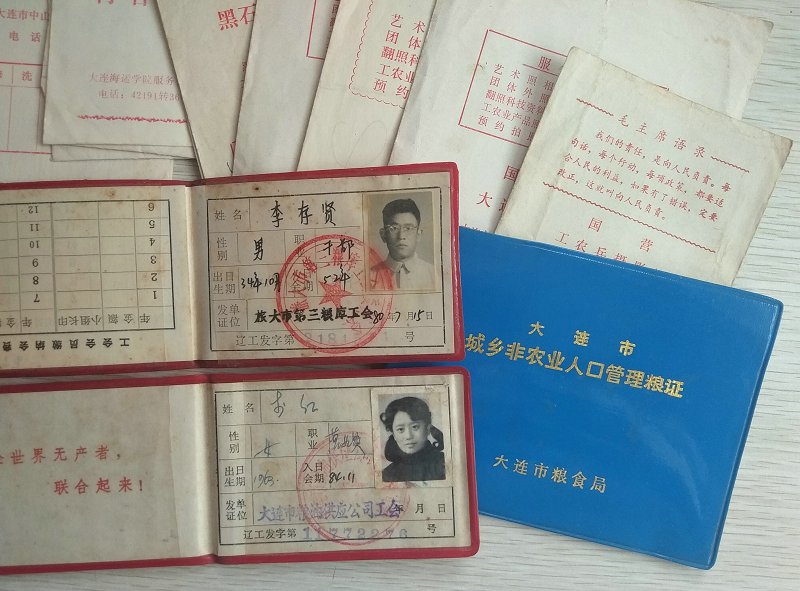 大连市中山
电话
大连海运学院服务
电话：42191转36
黑石
艺术
团体
翻照科
工农业
预约
服
艺术照相
团体外照
翻照科技资
工农业产品
预约拍
国
大连
毛主席语录
我们的责任，是向人民负责。每
句话，每个行动，每项政策，都要适
合人民的利益，如果有了错误，定要
改正，这就叫向人民负责。
国营
工农兵摄影
姓名 李存贤
性别 男 职业 干部
出生日期 34年10月
发证单位 旅大市第三粮库工会 80年7月15日
辽工发字第 号
工会会员缴纳会费
年 金额 小组长印 年 金额
1 2 3 4 5 6
7 8 9 10 11 12
姓名 李红
性别 女 职业
出生日期 1963. 入会日期 84.11
发证单位 大连市粮油供应公司工会 年 月 日
辽工发字第 11772276 号
全世界无产者，
联合起来！
大连市
城乡非农业人口管理粮证
大连市粮食局